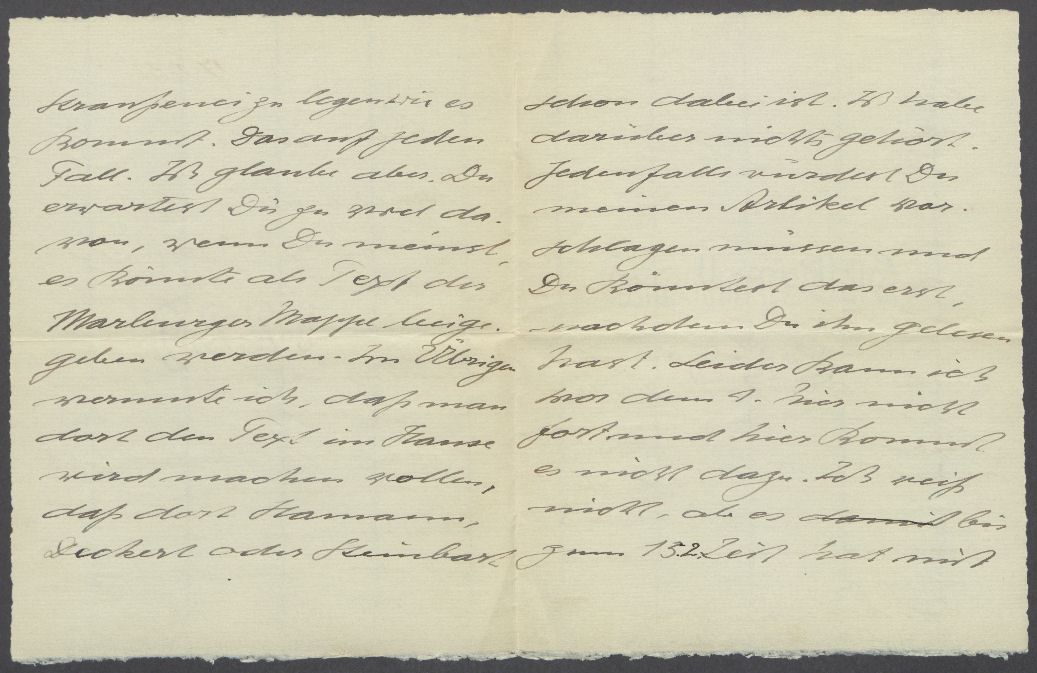 zu legen wie es
kommt. Das auf jeden
Fall. Ich glaube aber, Du
erwartest Dir zu viel da-
von, wenn Du meinst,
es könnte als Text der
Marburger Mappe beige-
geben werden. Im Übrigen
vermute ich, daß man
dort den Text im Hause
wird machen wollen,
daß dort Hamann,
Deckert oder Steinbart
schon dabei ist. Ich habe
darüber nichts gehört.
Jedenfalls würdest Du
meinen Artikel vor-
schlagen müssen und
Du könntest das erst,
nachdem Du ihn gelesen
hast. Leider kann ich
vor dem 1. hier nicht
fort und hier kommt
es nicht dazu. Ich weiß
nicht, ob es damit bis
zum 15.2. Zeit hat mit